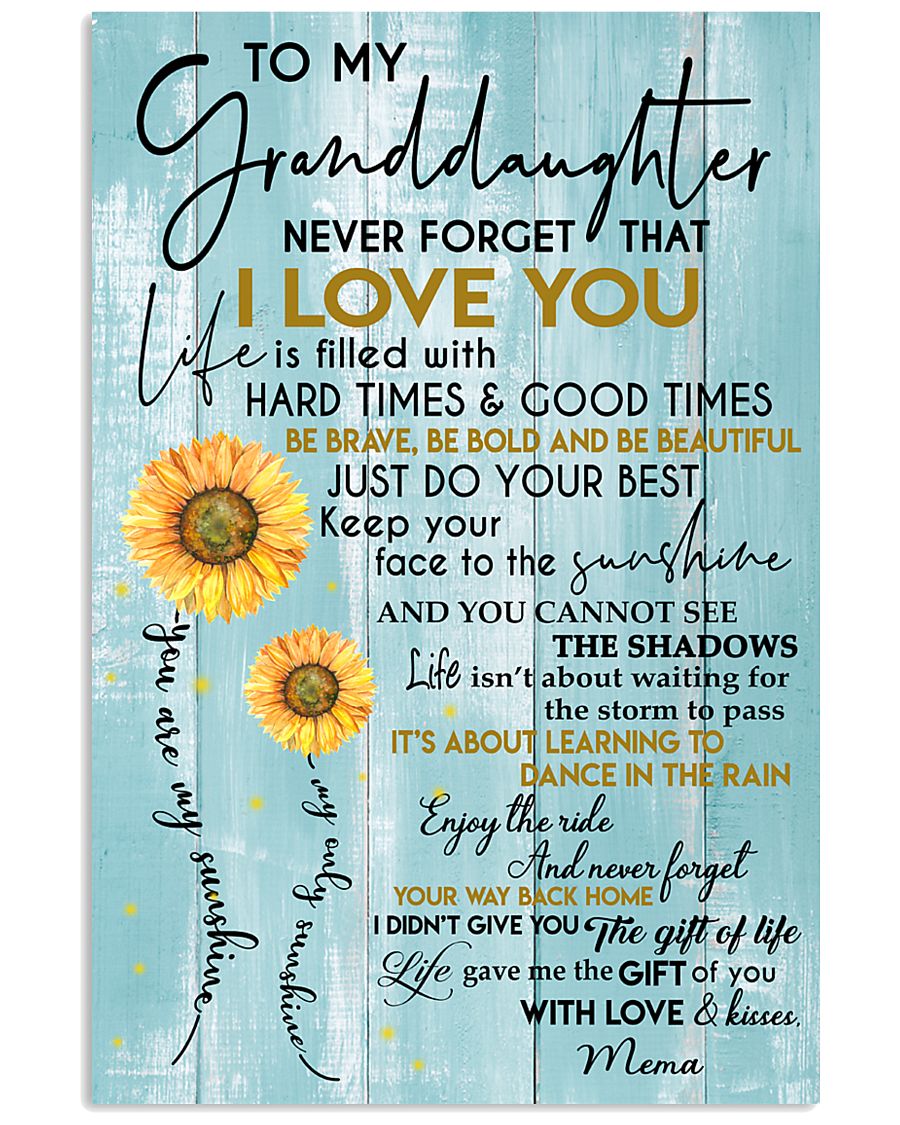 TO MY
Granddaughter
NEVER FORGET THAT
I LOVE YOU
Life is filled with
HARD TIMES & GOOD TIMES
BE BRAVE, BE BOLD AND BE BEAUTIFUL
JUST DO YOUR BEST
Keep your
face to the sunshine
AND YOU CANNOT SEE
THE SHADOWS
Life isn't about waiting for
the storm to pass
IT'S ABOUT LEARNING TO
DANCE IN THE RAIN
Enjoy the ride
And never forget
YOUR WAY BACK HOME
I DIDN'T GIVE YOU The gift of life
Life gave me the GIFT of you
WITH LOVE & kisses,
Mema
you are my sunshine
my only sunshine